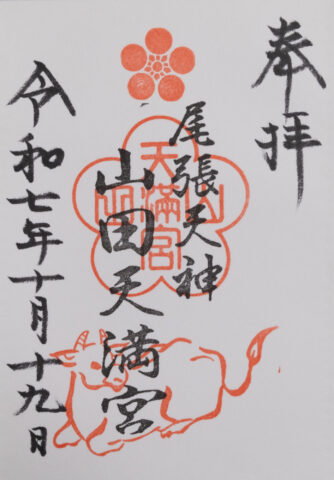 奉拝
尾張天神
山田天満宮
令和七年十月十九日
山田
天満宮